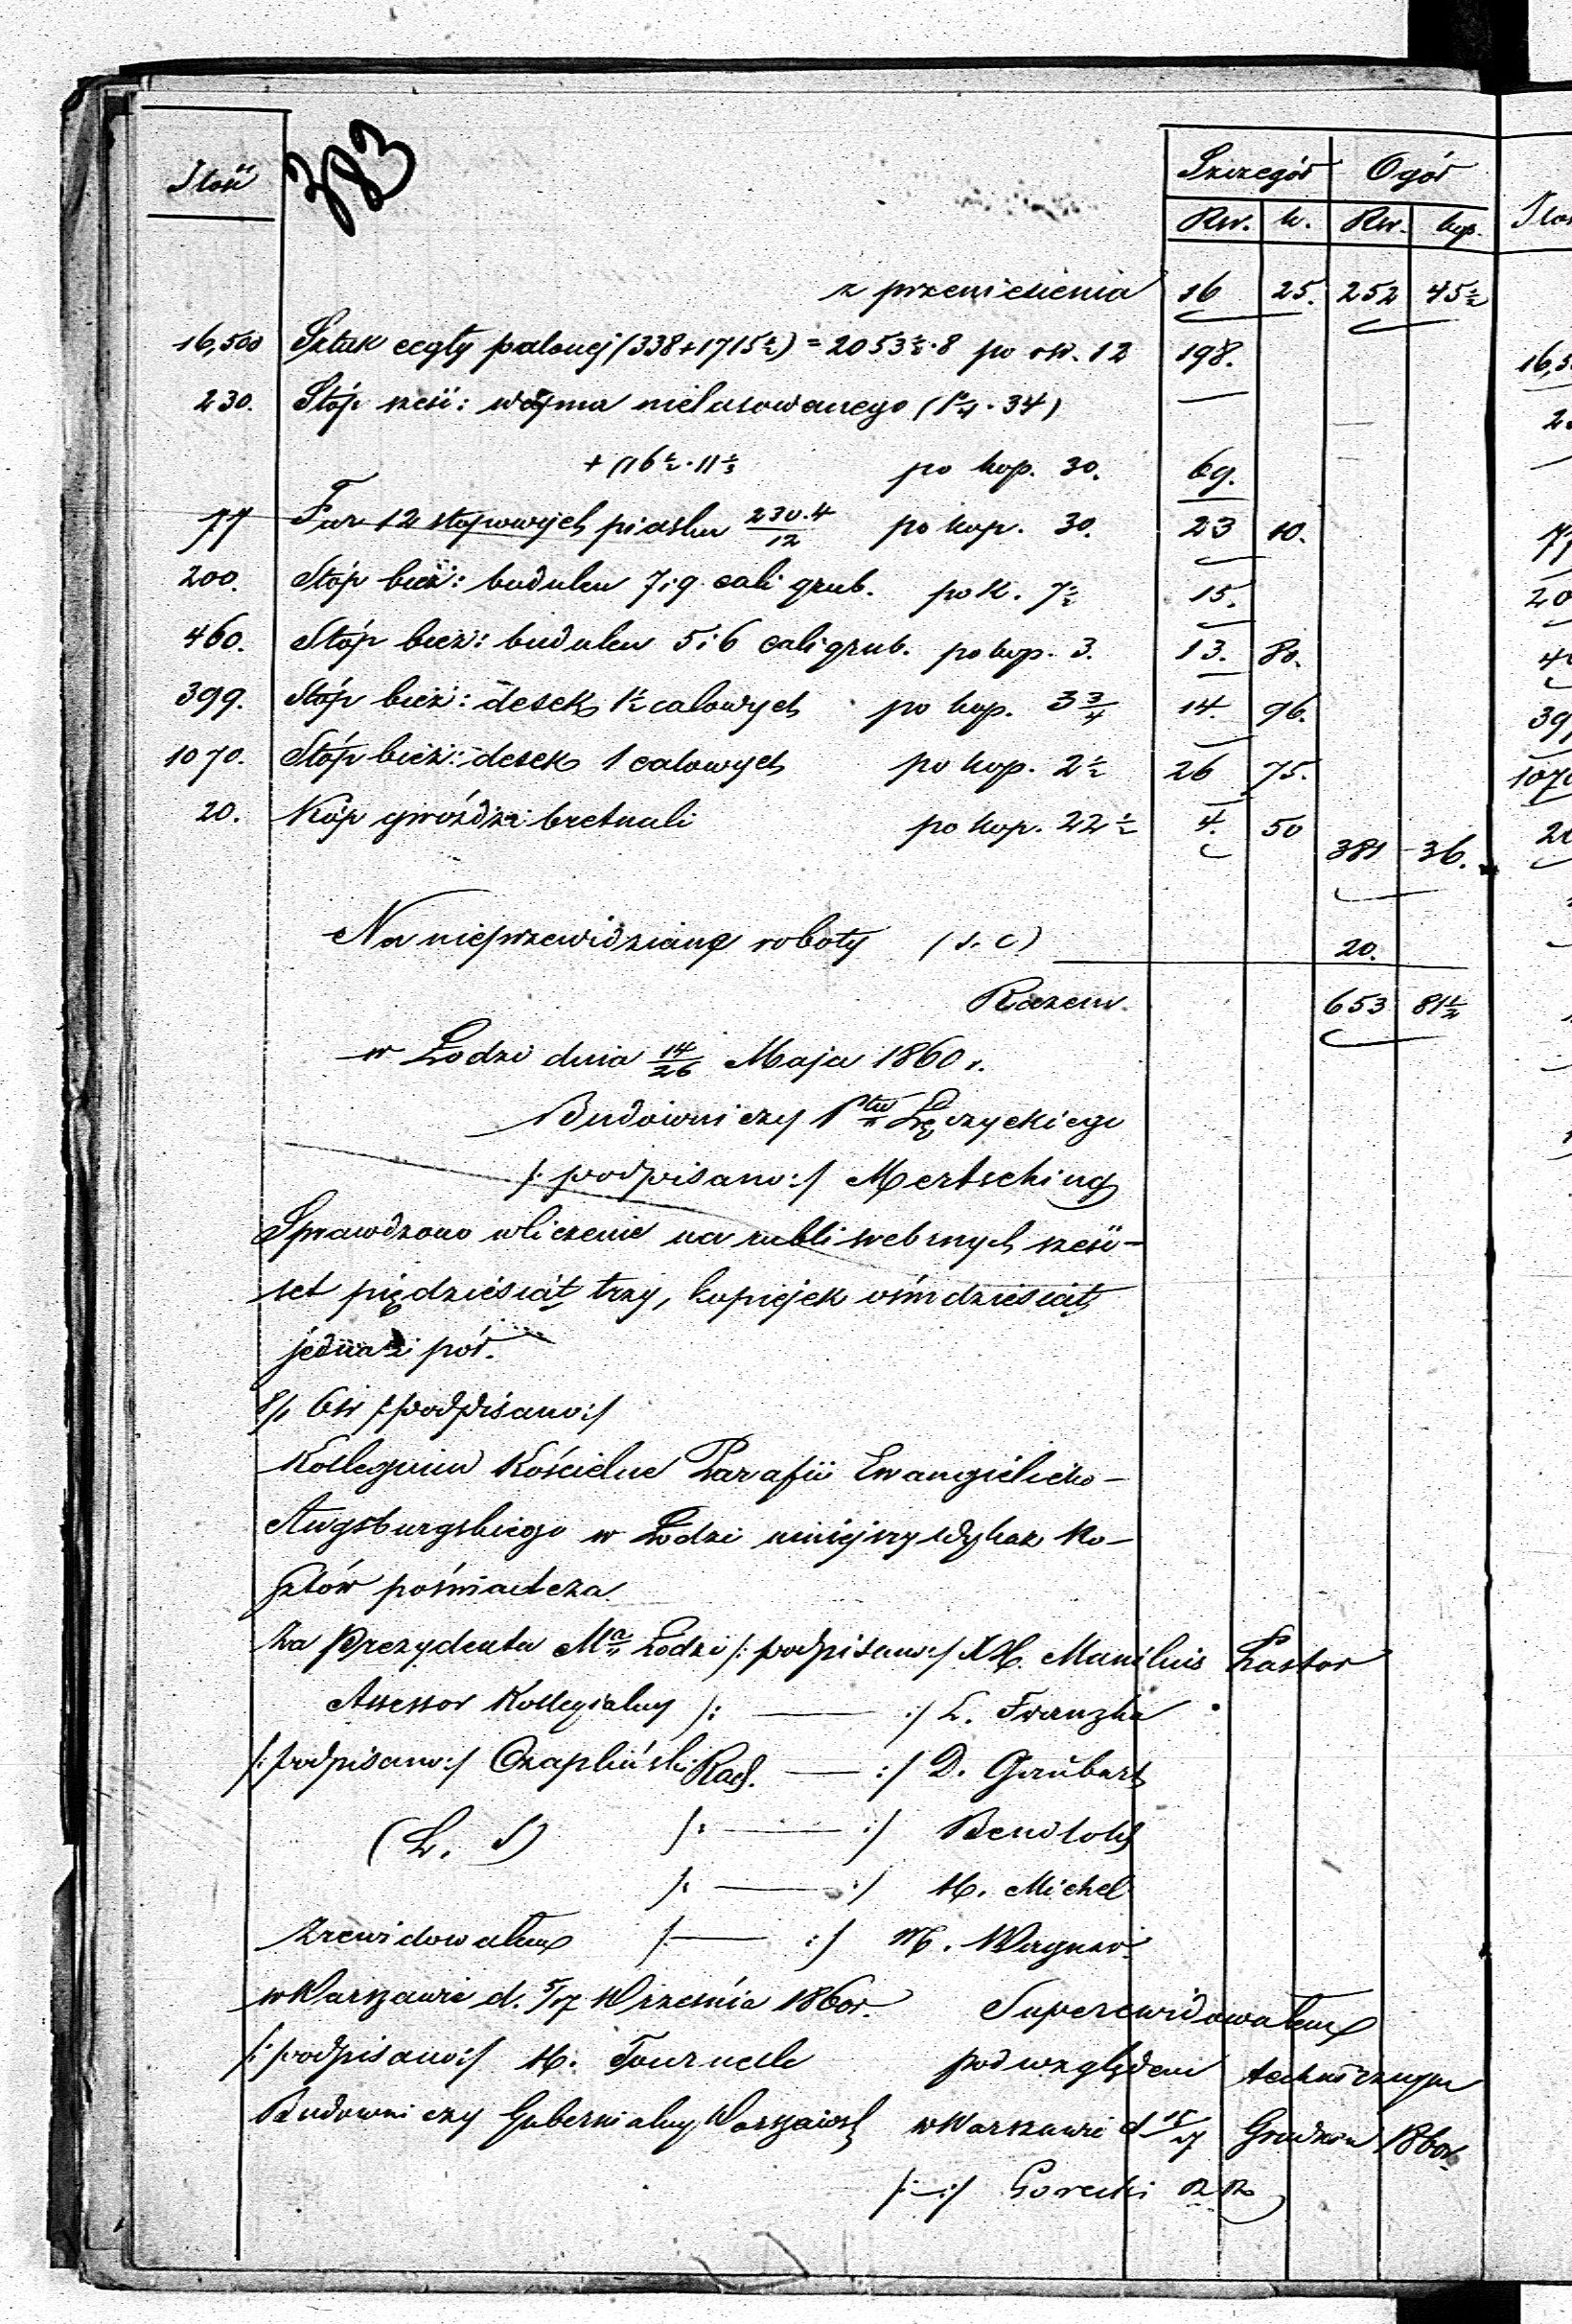 383
Ilość
Szczegół Ogół
Rsr. k. Rsr. kop.
z przeniesienia 16 25. 252 45½
16,500 Sztuk cegły palonej (338+1715½) = 2053½·8 po rsr. 12 198.
230. Stóp sześć: wapna nielasowanego (1¼·34)
+ (16½·11⅓ po kop. 30. 69.
77 Fur 12 stopowych piasku 230.4/12 po kop. 30. 23 10.
200. Stóp bież: budulcu 7 i 9 cali grub. po k. 7½ 15.
460. Stóp bież: budulcu 5 i 6 cali grub. po kop. 3. 13. 80.
399. Stóp bież: desek 1½ calowych po kop. 3¾ 14. 96.
1070. Stóp bież: desek 1 calowych po kop. 2½ 26 75.
20. Kóp gwoździ bretnali po kop. 22½ 4. 50
381 36.
Na nieprzewidziane roboty (s. c) 20.
Razem. 653 81½
w Łodzi dnia 14/26 Maja 1860 r.
Budowniczy Ptu Łęczyckiego
/: podpisano :/ Mertsching
Sprawdzono wliczenie na rubli srebrnych sześć-
set pięćdziesiąt trzy, kopiejek ośmdziesiąt
jedna i pół.
/podpisano:/
Kollegium Kościelne Parafii Ewangielicko-
Augsburgskiego w Łodzi niniejszy wykaz ko-
sztów poświadcza
Za Prezydenta Mta Łodzi /: podpisano :/ X H. Manitius Pastor
Assessor Kollegialny /: — :/ L. Franzke
/: podpisano :/ Czapliński Rad. — :/ D. Grubert
(L. S) /: — :/ Benitoly
/: — :/ H. Michel
Zrewidowałem /: — :/ M. Wagner
w Warszawie d. 5/17 Września 1860 r. Superrewidowałem
/: podpisano :/ H. Tournelle pod względem technicznym
Budowniczy Gubernialny Warszawsk w Warszawie d 15/27 Grudnia 1860 r.
/: — :/ Gorecki R R
16,5
77
20
39
1070
20